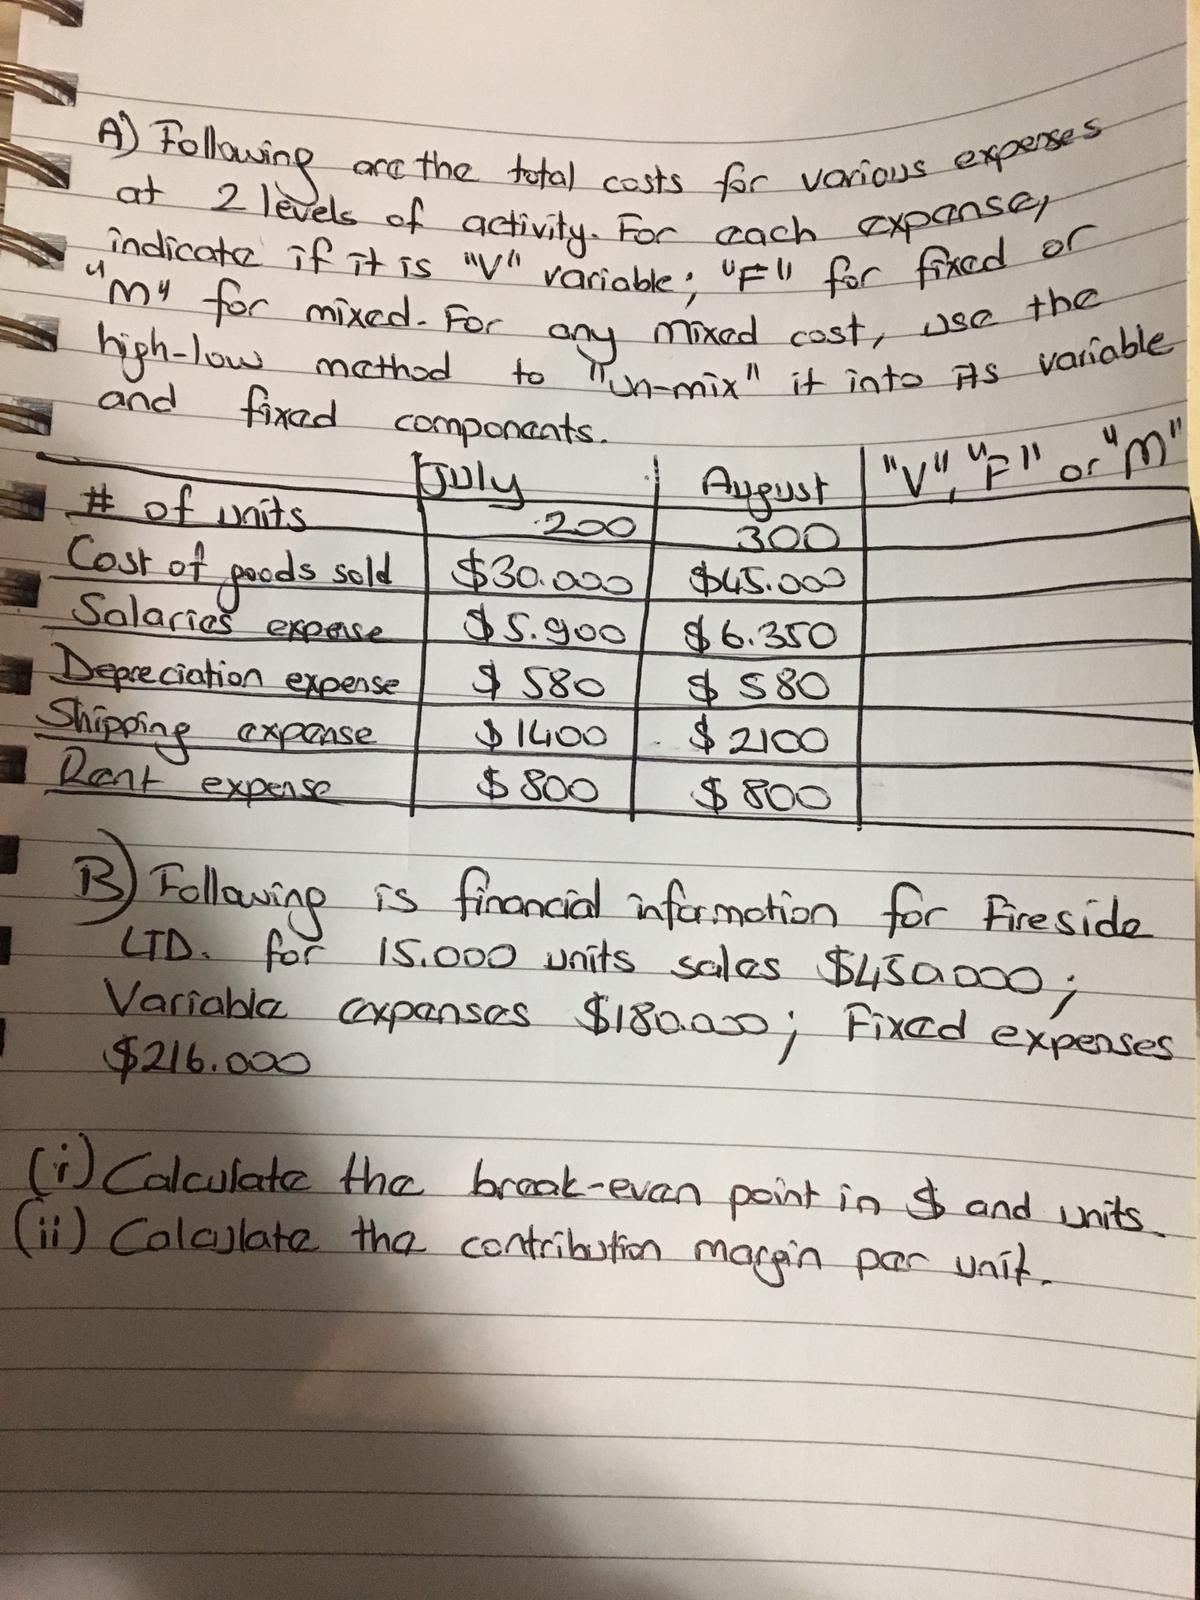 A) Following are the total costs for various expenses
at 2 levels of activity. For each expense,
indicate if it is "V" variable; "F" for fixed or
"M" for mixed. For any mixed cost, use the
high-low method to "un-mix" it into its variable
and fixed components.
July August "V", "F" or "M"
# of units 200 300
Cost of goods sold $30.000 $45.000
Salaries expense $5.900 $6.350
Depreciation expense $580 $580
Shipping expense $1400 $2100
Rent expense $800 $800
B) Following is financial information for Fireside
LTD. for 15.000 units sales $450000;
Variable expenses $180.000; Fixed expenses
$216.000
(i) Calculate the break-even point in $ and units.
(ii) Calculate the contribution margin per unit.